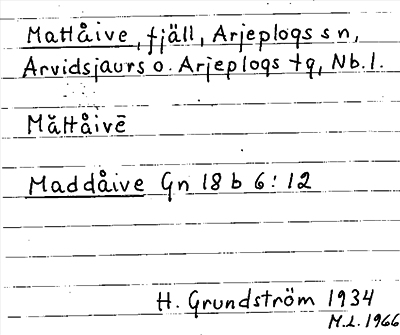 Mattåive, fjäll, Arjeplogs sn,
Arvidsjaurs o. Arjeplogs tg, Nb.l.
Măttåivē
Maddåive Gn 18 b 6:12
H. Grundström 1934
M.L. 1966